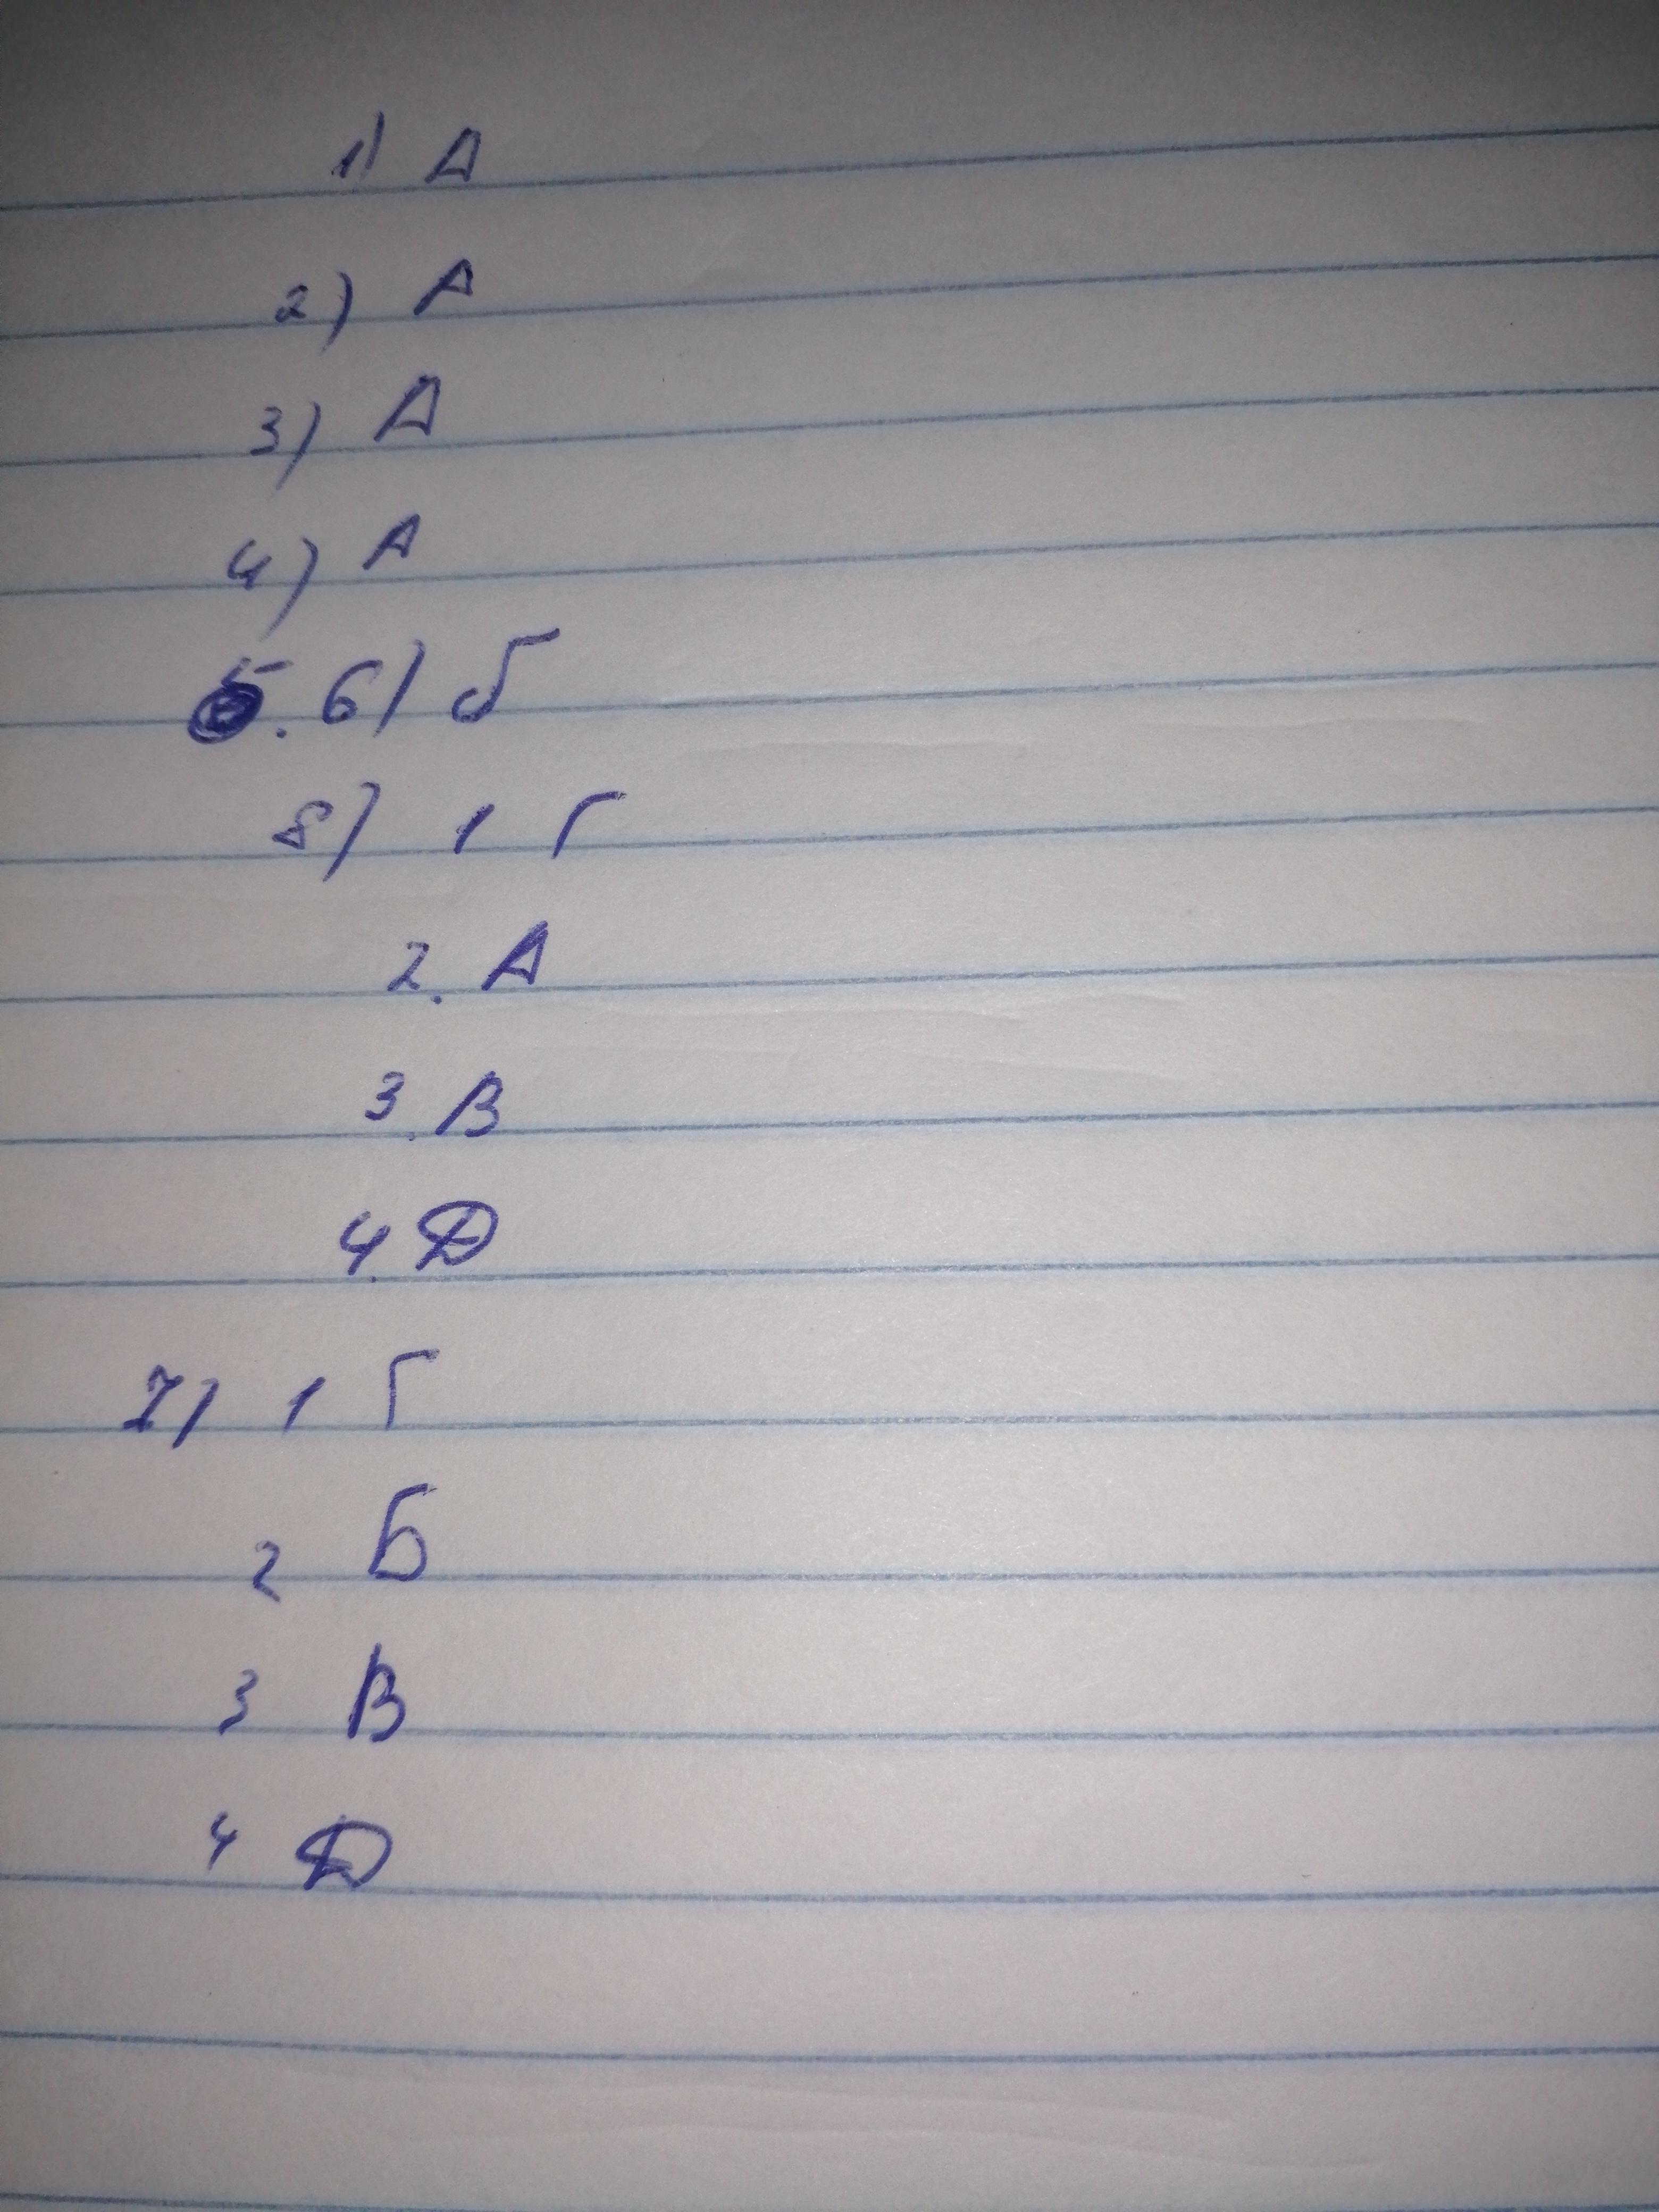 1) А
2) А
3) А
4) А
5. 6) б
8) 1 Г
2. А
3. В
4. Д
7) 1 Г
2 Б
3 В
4 Д